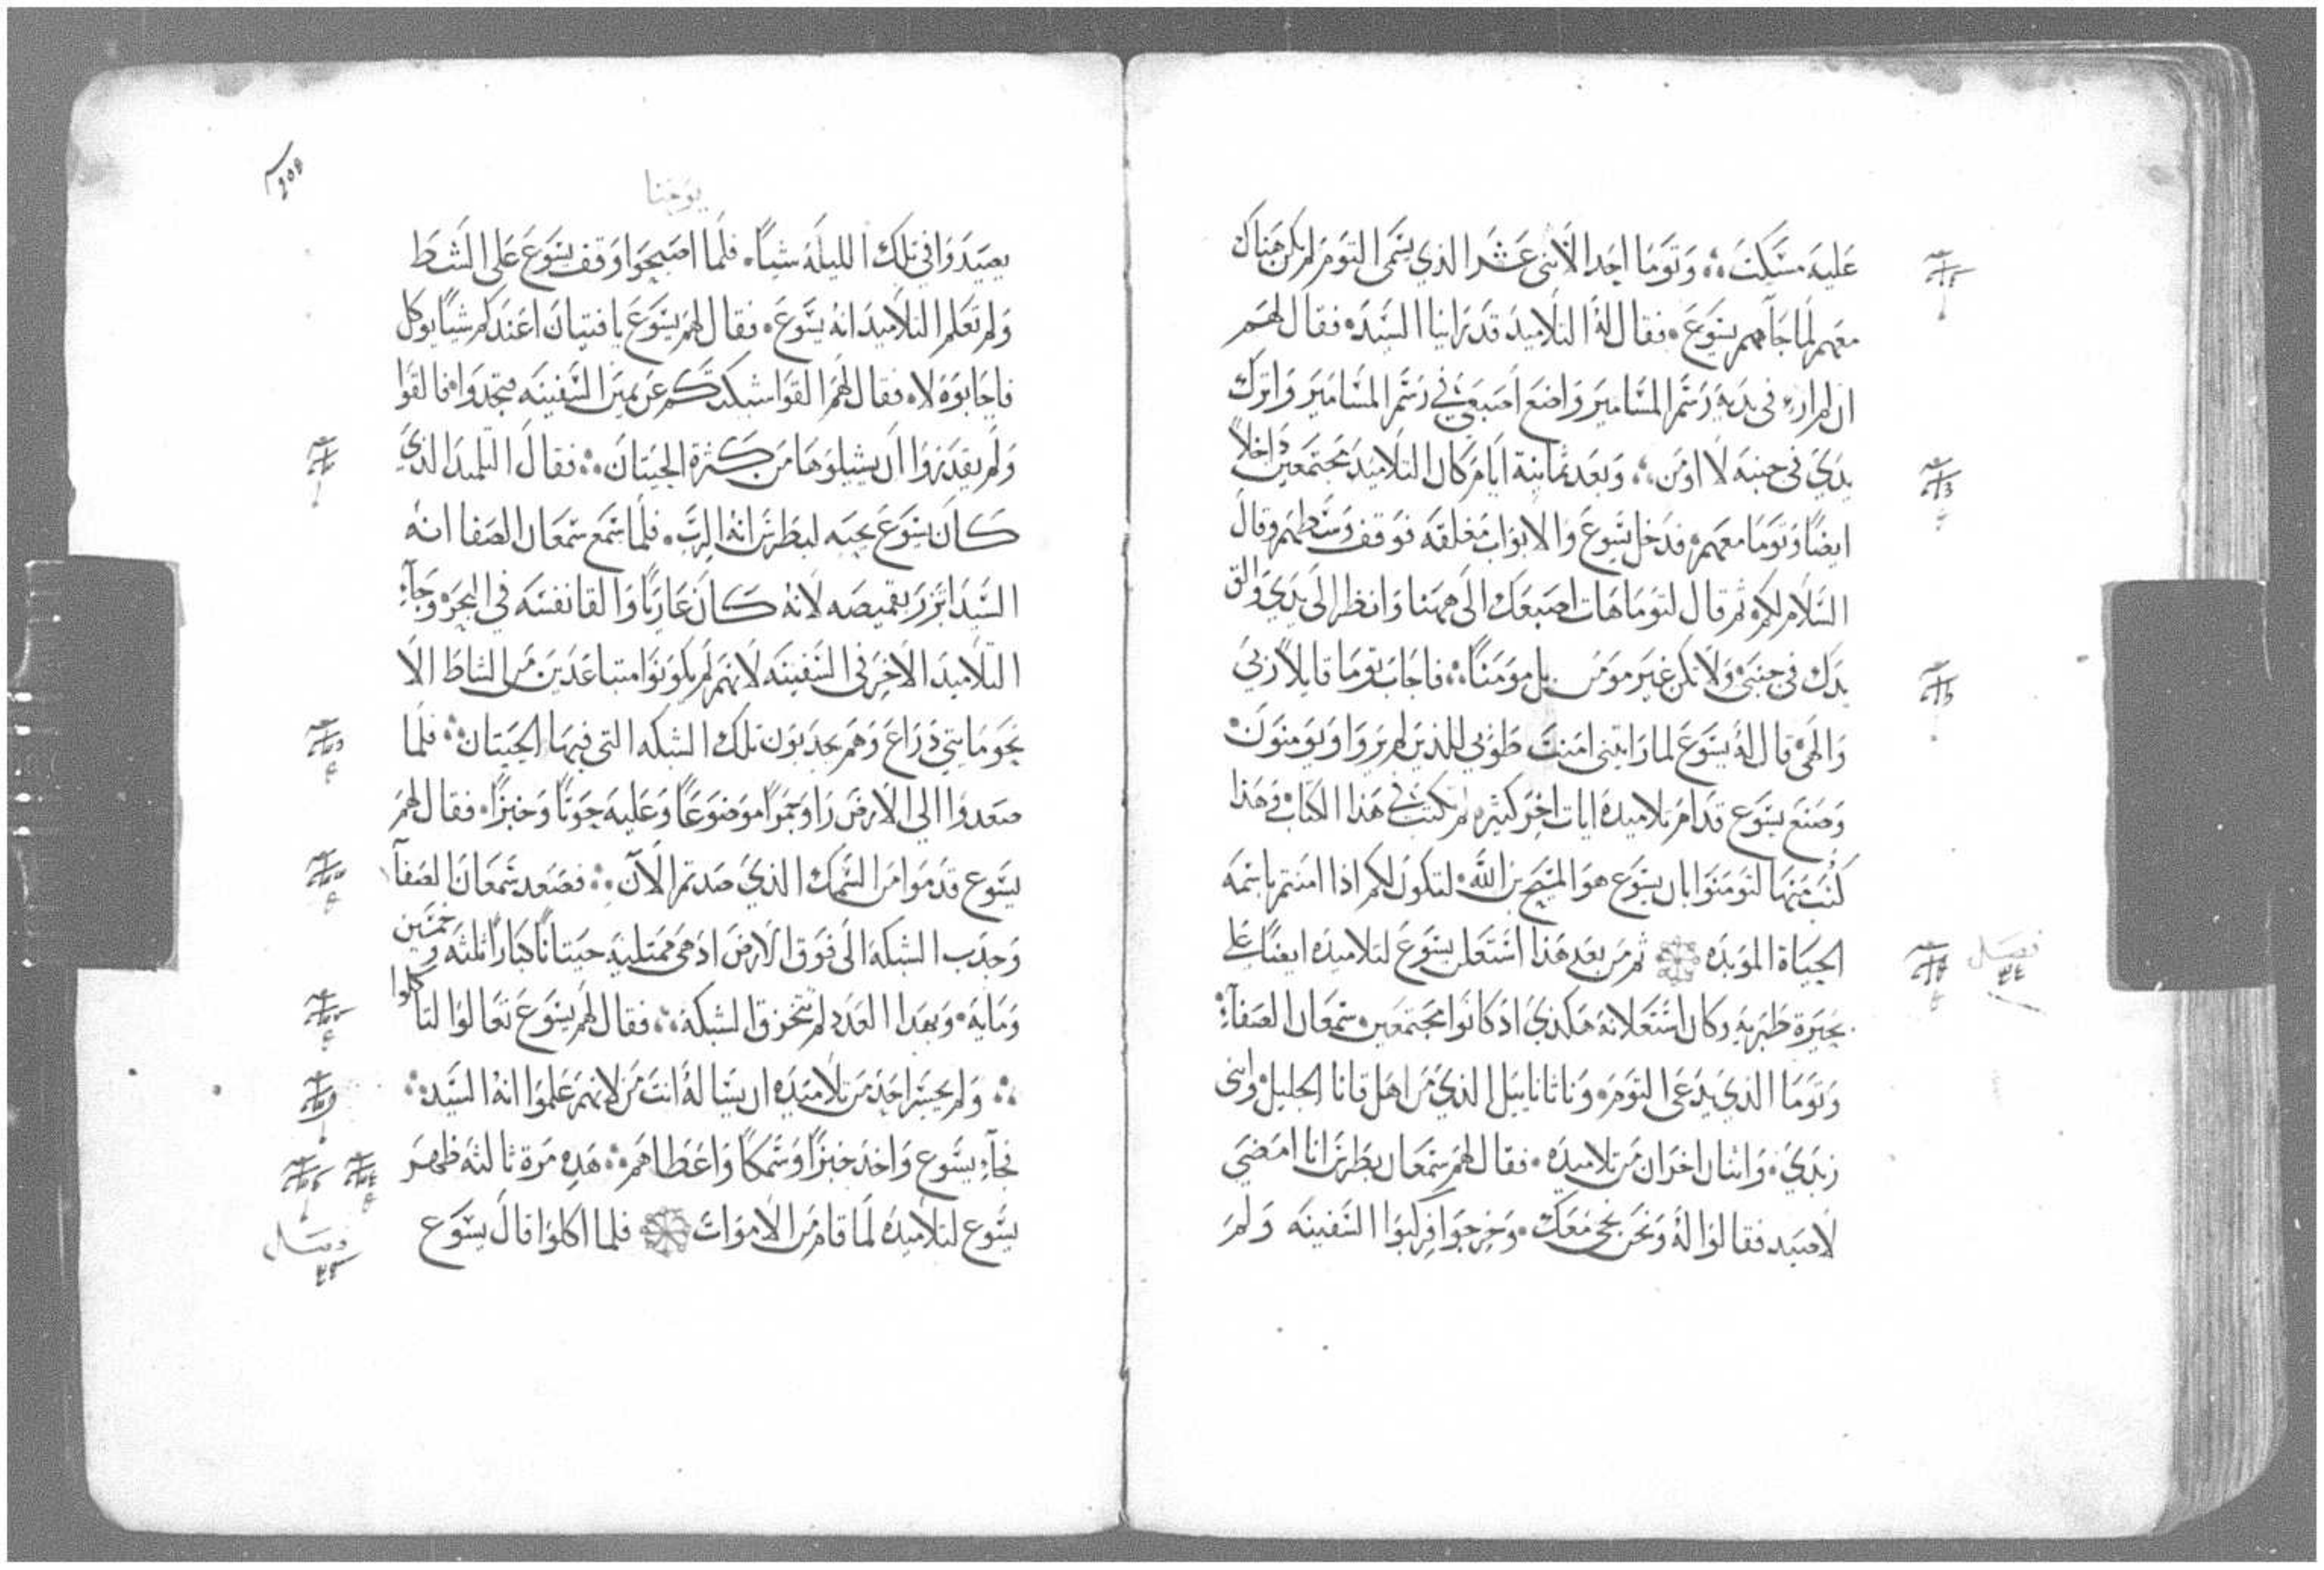 عليه مسكت ۞ وتوما احد الاثنى عشر الذي يسمى التوم لم يكن هناك
معهم لما جآهم يسوع ۰ فقال له التلاميذ قد راينا السيد ۰ فقال لهم
ان لم ارى في يديه رسم المسامير واضع اصبعي في رسم المسامير واترك
يدي في جنبه لا اومن ۞ وبعد ثمانية ايام كان التلاميذ مجتمعين داخلاً
ايضاً وتوما معهم ۰ فدخل يسوع والابواب مغلقه فوقف وسطهم وقال
السلام لكم ۰ ثم قال لتوما هات اصبعك الى ههنا وانظر الى يدي والق
يدك في جنبي ولا تكن غير مومن بل مومناً ۞ فاجاب توما قايلاً ربي
والهي ۰ قال له يسوع لما رايتني امنت طوبي للذين لم يروا ويومنون ۰
وصنع يسوع قدام تلاميذه ايات اخر كثيره لم تكتب في هذا الكتاب ۰ وهذا
كتب منها لتومنوا بان يسوع هو المسيح بن الله ۰ لتكون لكم اذا امنتم باسمه
الحياة الموبده ۞ ثم من بعد هذا استعلن يسوع لتلاميذه ايضاً على
بحيرة طبريه وكان استعلانه هكذي اذ كانوا مجتمعين ۰ سمعان الصفآ ۞
وتوما الذي يدعى التوم ۰ وناثاناييل الذي من اهل قانا الجليل ۰ وابنى
زبدي ۰ واثنان اخران من تلاميذه ۰ فقال لهم سمعان بطرس انا امضي
لاصيد فقالوا له ونحن نجى معك ۰ وخرجوا فركبوا السفينه ولم
فصل
٤٤
يوحنا
يصيدوا في تلك الليله شياً ۰ فلما اصبحوا وقف يسوع على الشط
ولم تعلم التلاميذ انه يسوع ۰ فقال لهم يسوع يا فتيان اعندكم شياً يوكل
فاجابوه لا ۰ فقال لهم القوا شبكتكم عن يمين السفينه فتجدوا ۰ فالقوا
ولم يقدروا ان يشيلوها من كثرة الحيتان ۞ فقال التلميذ الذي
كان يسوع يحبه لبطرس انه الرب ۰ فلما سمع سمعان الصفا انه
السيد اتزر بقميصه لانه كان عارياً والقا نفسه في البحر ۰ وجآء
التلاميذ الاخر في السفينه لانهم لم يكونوا متباعدين من الشاط الا
نحو مايتي ذراع وهم يجدبون تلك الشبكه التي فيها الحيتان ۞ فلما
صعدوا الي الارض راوا جمراً موضوعاً وعليه حوتاً وخبزاً ۰ فقال لهم
يسوع قدموا من السمك الذي صدتم الآن ۞ فصعد سمعان الصفآ
وجدب الشبكه الى فوق الارض اذ هي ممتليه حيتاناً كباراً ثلثه وخمسين
ومايه ۰ وبهدا العدد لم تتخرق الشبكة ۞ فقال لهم يسوع تعالوا لتاكلوا
۞ ولم يجسر احد من تلاميذه ان يساله انت من لانهم علموا انه السيد ۞
فجآء يسوع واخذ خبزاً وسمكاً واعطاهم ۞ هده مرة ثالثه ظهر
يسوع لتلاميذه لما قام من الاموات ۞ فلما اكلوا قال يسوع
فصل